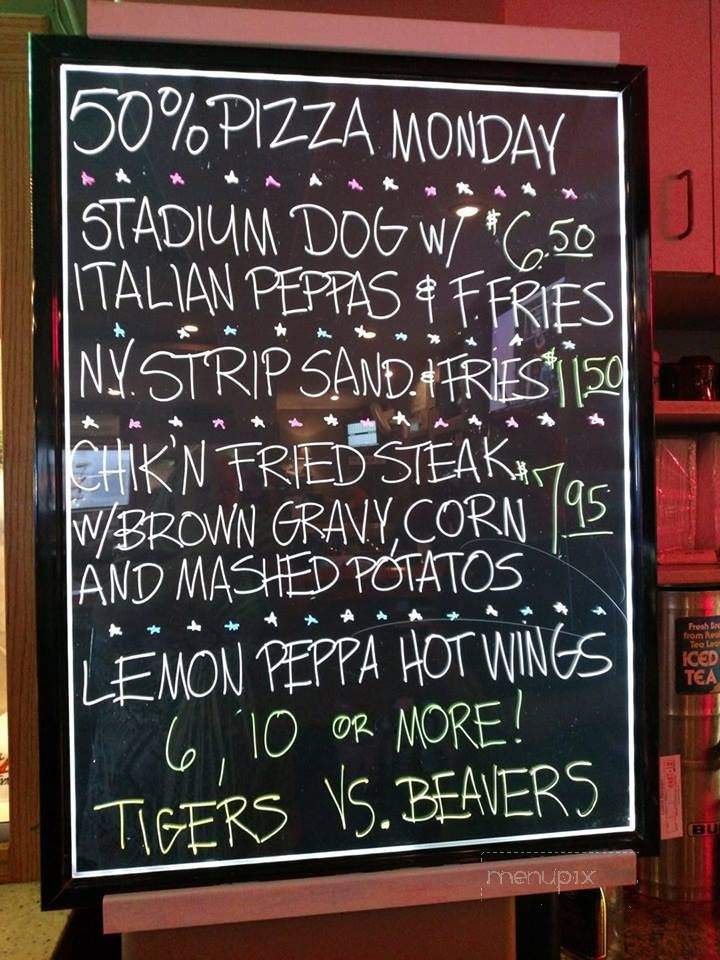 50% PIZZA MONDAY
STADIUM DOG W/ $6.50
ITALIAN PEPPAS & F. FRIES
N.Y. STRIP SAND. & FRIES $11.50
CHIK'N FRIED STEAK $7.95
W/BROWN GRAVY, CORN
AND MASHED POTATOS
LEMON PEPPA HOT WINGS
6, 10 OR MORE!
TIGERS VS. BEAVERS
menupix
Fresh
from
Tea
ICED
TEA